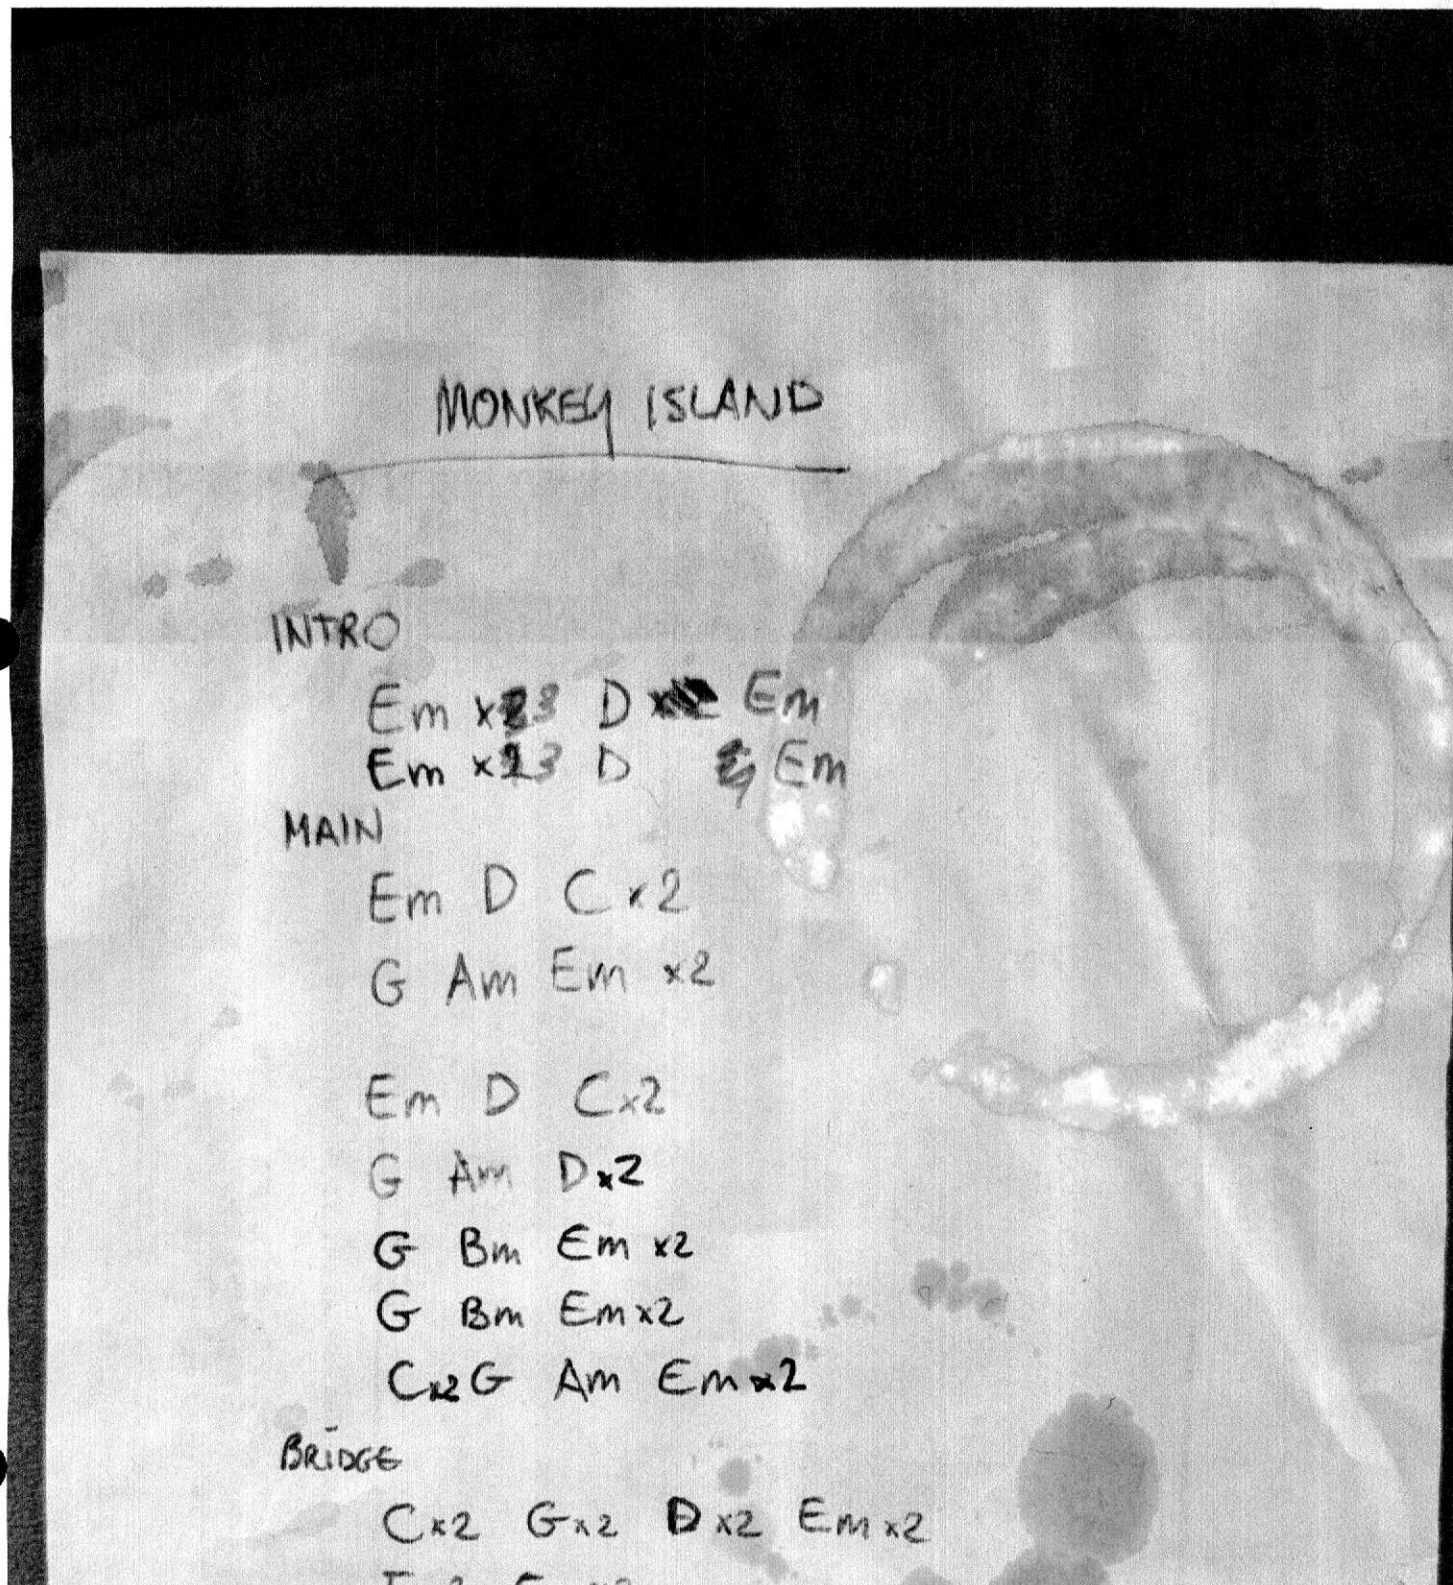 MONKEY ISLAND
INTRO
Em x3 D Em
Em x3 D Em
MAIN
Em D C x2
G Am Em x2
Em D C x2
G Am D x2
G Bm Em x2
G Bm Em x2
C x2 G Am Em x2
BRIDGE
C x2 G x2 D x2 Em x2